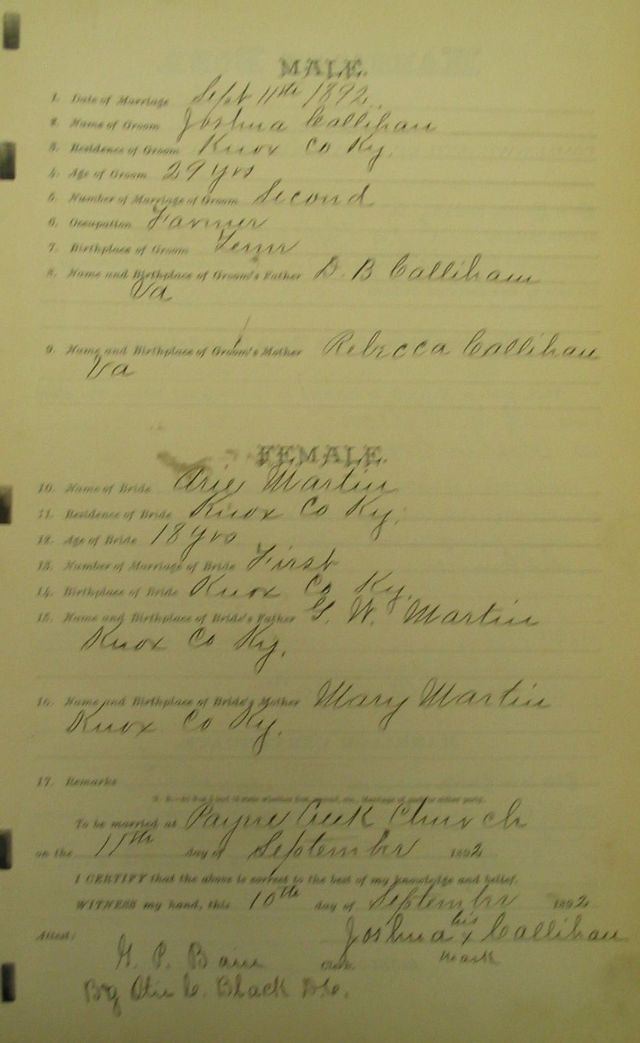 MALE.
1. Date of Marriage Sept 11th 1892.
2. Name of Groom Joshua Callihan
3. Residence of Groom Knox Co Ky.
4. Age of Groom 29 yrs
5. Number of Marriage of Groom Second
6. Occupation Farmer
7. Birthplace of Groom Tennr
8. Name and Birthplace of Groom's Father D. B Calliham
Va
9. Name and Birthplace of Groom's Mother Rebecca Callihan
Va
FEMALE.
10. Name of Bride Arie Martin
11. Residence of Bride Knox Co Ky.
12. Age of Bride 18 yrs
13. Number of Marriage of Bride First
14. Birthplace of Bride Knox Co Ky.
15. Name and Birthplace of Bride's Father G. W. Martin
Knox Co Ky.
16. Name and Birthplace of Bride's Mother Mary Martin
Knox Co Ky.
17. Remarks
To be married at Payne Creek Church
on the 11th day of September 1892
I CERTIFY that the above is correct to the best of my knowledge and belief.
WITNESS my hand, this 10th day of September 1892
Joshua his x Callihan
Attest: mark
G. P. Bain Clerk.
By C. Black D.C.